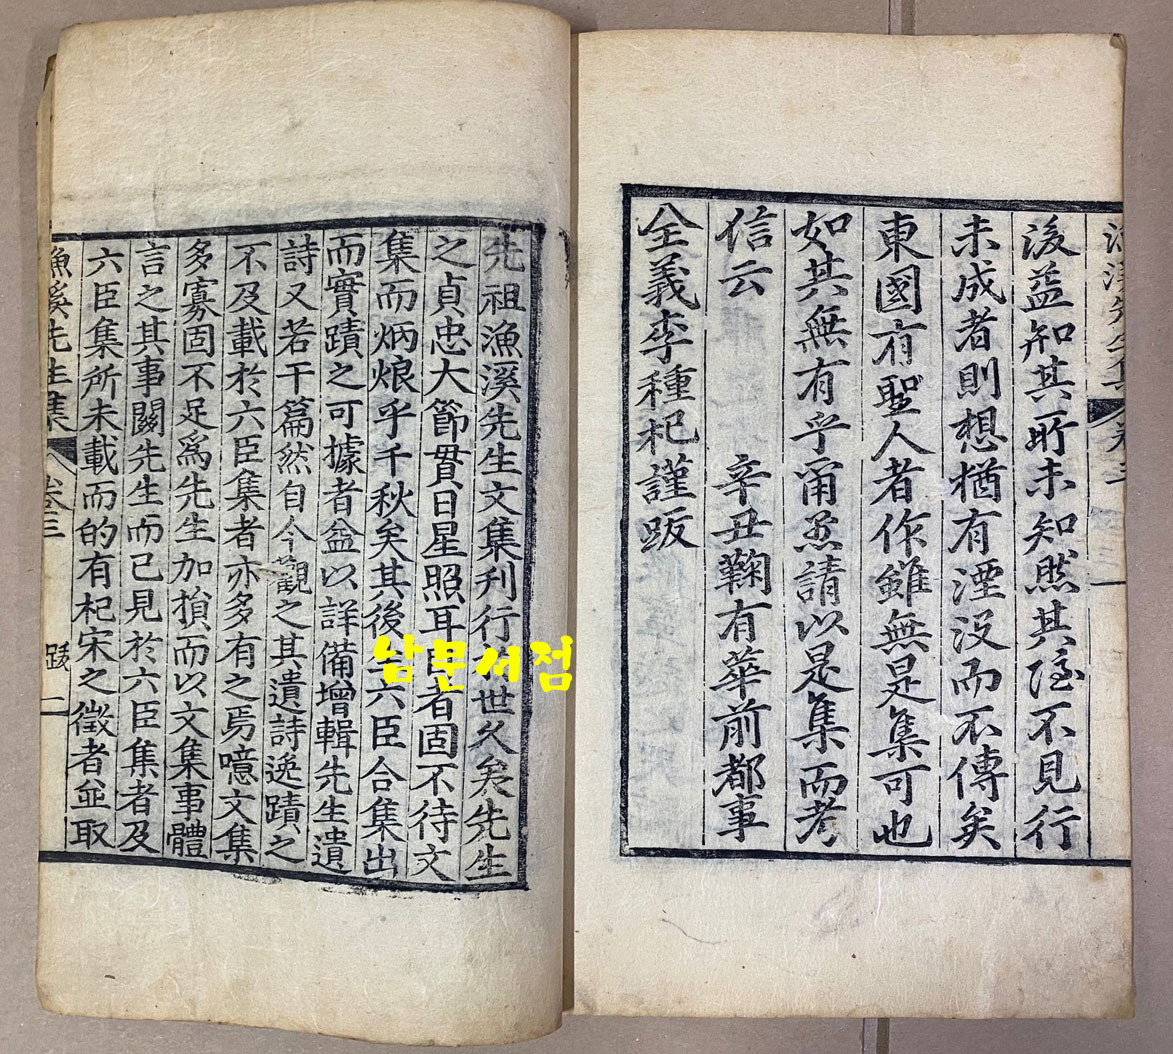 漁溪先生集 卷三
後益知其所未知然其隱不見行
未成者則想猶有湮沒而不傳矣
東國有聖人者作雖無是集可也
如其無有乎甭烝請以是集而考
信云 辛丑鞠有華前都事
全義李種杞謹跋
先祖漁溪先生文集刊行世久矣先生
之貞忠大節貫日星照耳目者固不待文
集而炳烺乎千秋矣其後六臣合集出
而實蹟之可據者益以詳備增輯先生遺
詩又若干篇然自今觀之其遺詩逸蹟之
不及載於六臣集者亦多有之焉噫文集
多寡固不足爲先生加損而以文集事體
言之其事關先生而已見於六臣集者及
六臣集所未載而的有杞宋之徵者並取
漁溪先生集 卷三 跋 二
남문서점